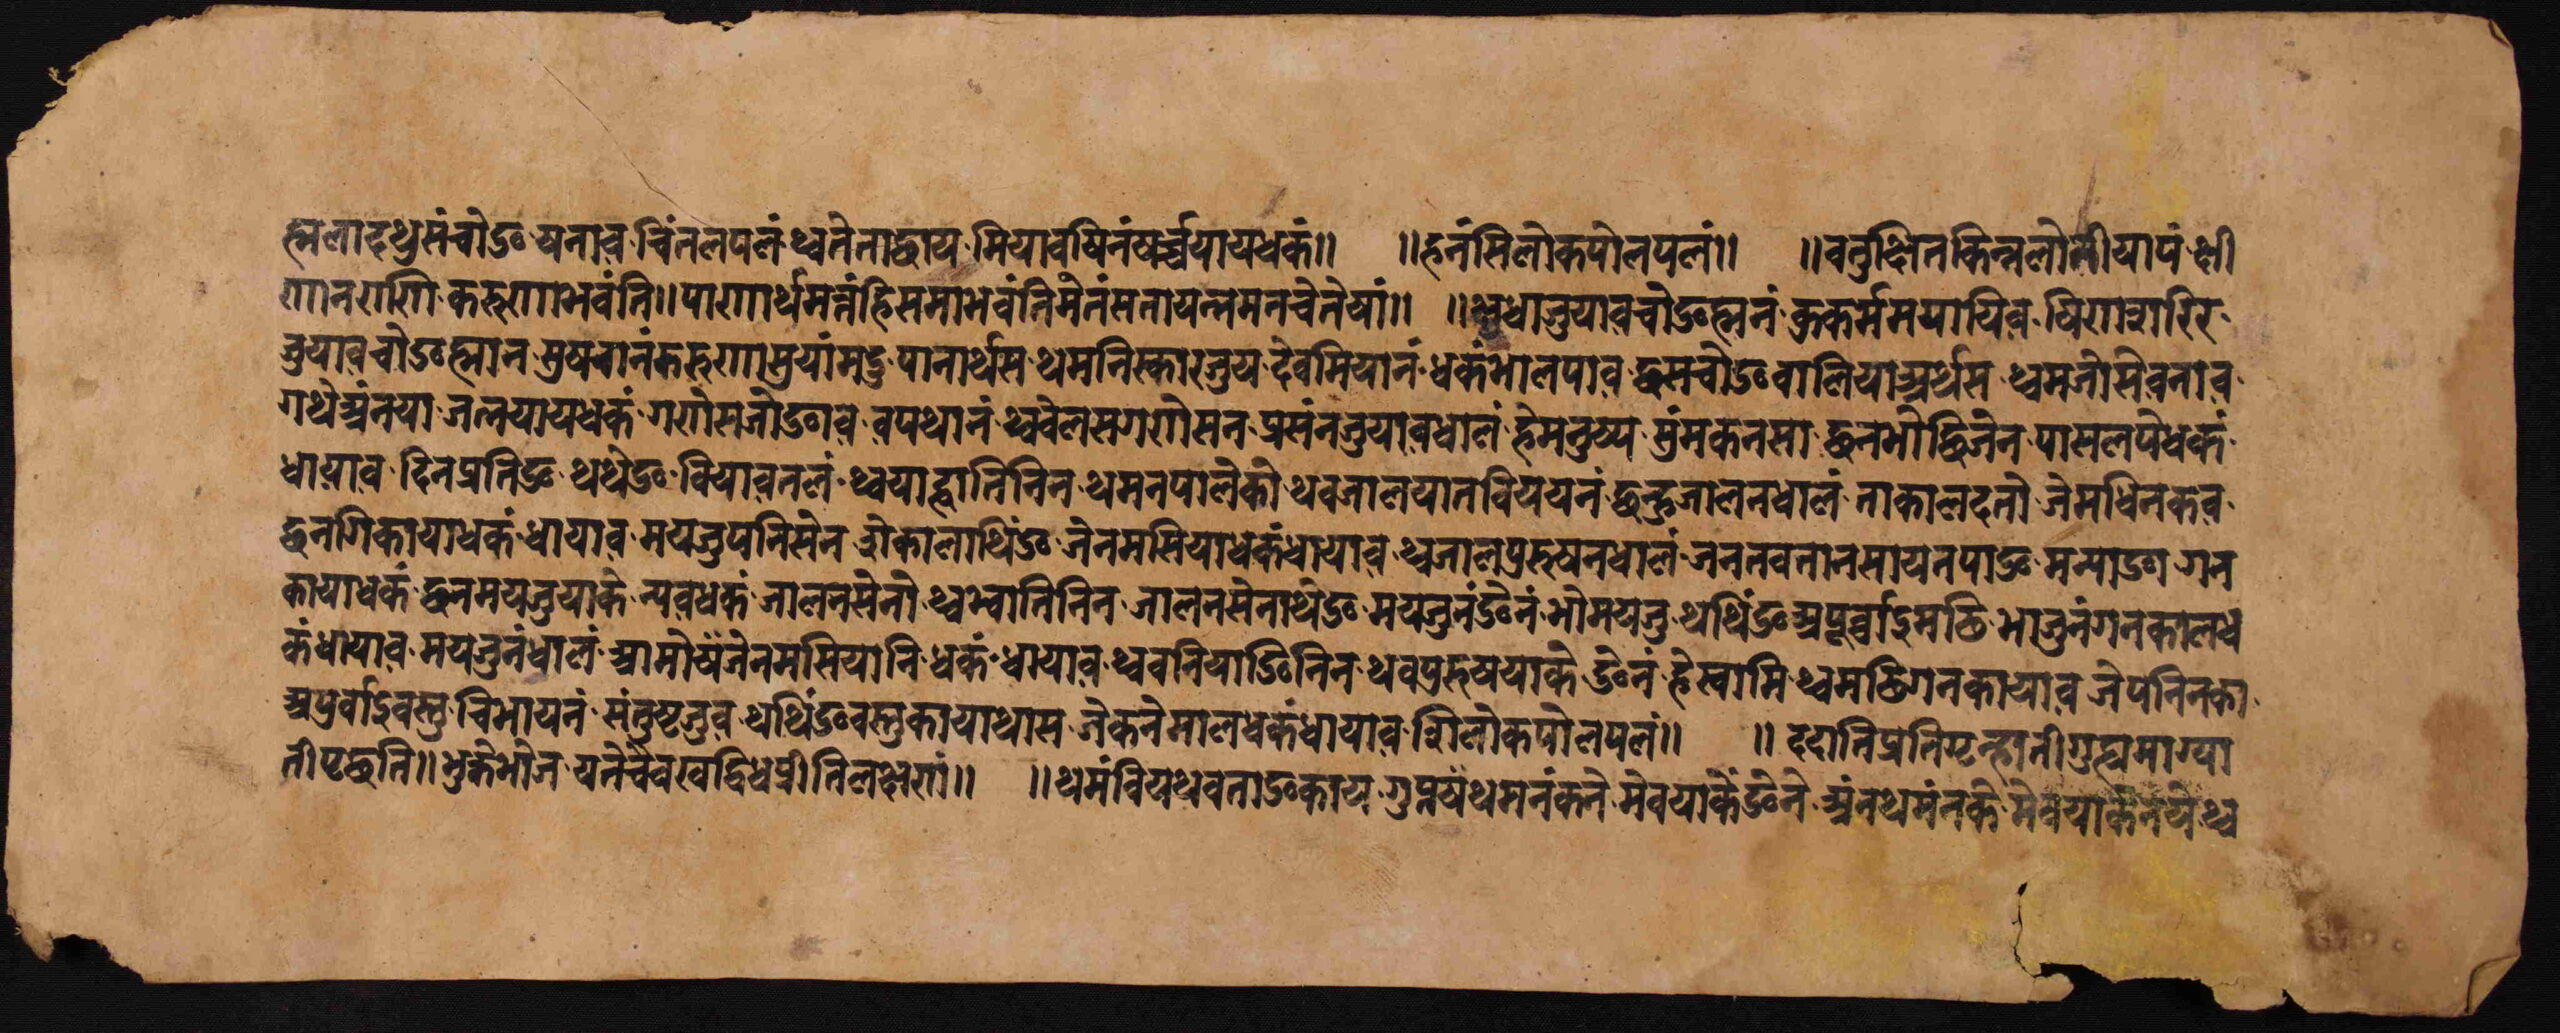 ह्मलादथुसंचोङ यनाव चिंतलपलं थ्वतेताद्धाय मियावषिनंष्वर्च्चयायधकं॥ ॥हनंसिलोकपोलपलं॥ ॥वतुक्षितकिन्नलोतीयापं क्षी
णानराणि करुणाभवंति॥पाणार्थमन्नंहिसमाभवंतिमेतंसतायन्नमनचेतेषां॥ ॥क्षुधाजुयावचोङह्मनं कुकर्ममयायिव षिणशरिर
जुयावचोङह्मान मुषवानंकरुणामुयांमदु पानार्थस थमनिस्कारजुय देवमियानं धकंभालपाव द्धसचोङवालियाअर्थस थ्वमजोसेवनाव
गथेअंनया जत्नयायधकं गणेसजोङाव वपथानं थ्ववेलसगणेसन प्रसंनजुयावधालं हेमनुष्य मुंमकनसा छनभोछिजेन पासलपेधकं
धायाव दिनप्रतिङ थथेङ वियावतलं थ्वयाह्लातिनिन थमनपालेको थवजालयातवियेयनं छन्हुजालनधालं ताकालदतो जेमधिनकव
छनगिकायाधकं धायाव मयजुपनिसेन ओकालाथिंङ जेनमसियाधकंधायाव थ्वजालपुरुषनधालं जनतवतानसायनपाङ मन्याङा गन
कायाधकं छनमयजुयाके न्यवधकं जालनसेनो थ्वभ्वातिनिन जालनसेनाथेङ मयजुनंङेनं भोमयजु थथिंङअपूर्व्वाइमठि भाजुनंगनकालध
कंधायाव मयजुनंधालं आमोयंजेनमसियानि धकं धायाव थ्ववनियाङिनिन थवपुरुषयाके ङेनं हेस्वामि थ्वमठिगनकायाव जेपनिनका
अपुर्वाइवस्तु चिभायनं संतुष्टजुव थथिंङवस्तुकायाथास जेकनेमालधकंधायाव शिलोकपोलपलं॥ ॥ददातिप्रतिष्टन्हातीगुह्यमाग्या
तीपृछति॥भुक्तेभोज यतेचैवखद्विधप्रीतिलक्षणं॥ ॥थमंवियथवताङकाय गुप्तयंथमनंकने मेवयाकेंङेने अंनथमंनके मेवयाकेनये थ्व